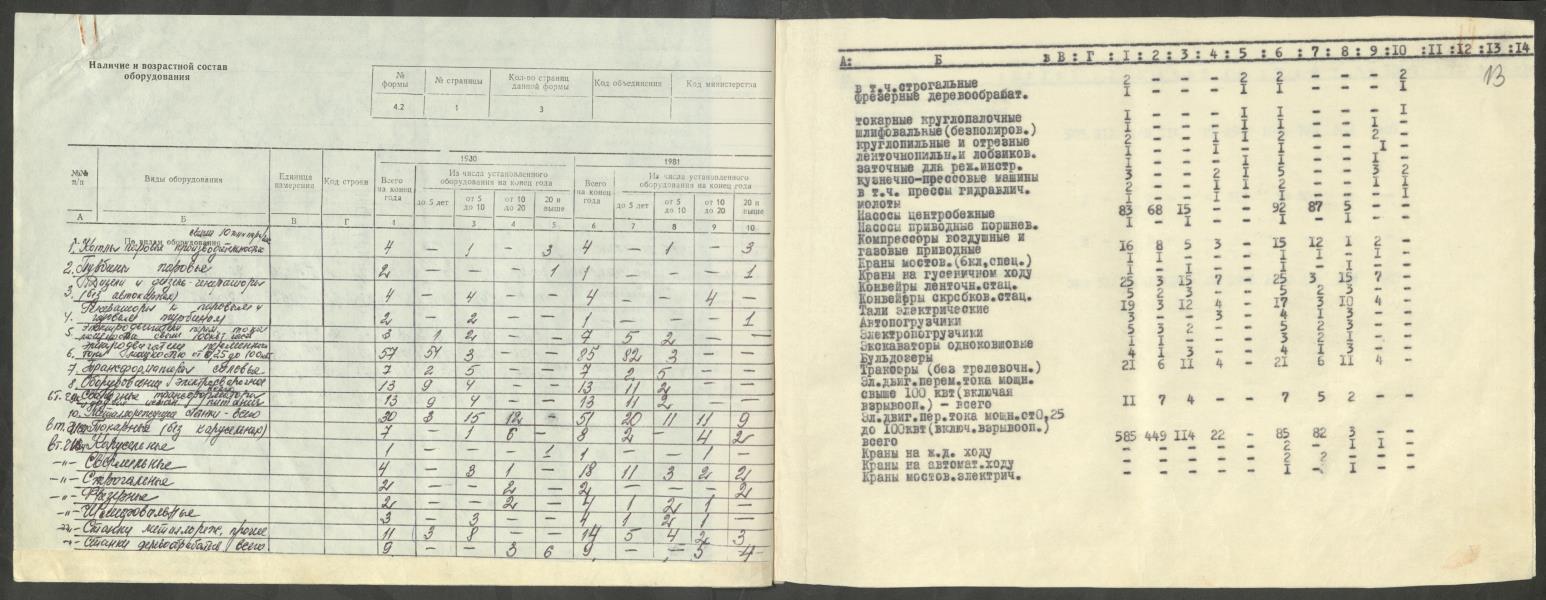 Наличие и возрастной состав
оборудования
№ формы № страницы Кол-во страниц данной формы Код объединения Код министерства
4.2 1 3
№№ п/п Виды оборудования Единица измерения Код строки 1980 1981
Всего на конец года Из числа установленного оборудования на конец года Всего на конец года Из числа установленного оборудования на конец года
до 5 лет от 5 до 10 от 10 до 20 20 и выше до 5 лет от 5 до 10 от 10 до 20 20 и выше
А Б В Г 1 2 3 4 5 6 7 8 9 10
По видам оборудования
1. Котлы паровые производительностью свыше 10 4 – 1 – 3 4 – 1 – 3
2. Турбины паровые 2 – – – 1 1 – – – 1
3. Дизели и дизель-генераторы (без автокранах) 4 – 4 – – 4 – – 4 –
4. Генераторы к паровым и газовым турбинам 2 – 2 – – 1 – – – 1
5. Электродвигатели перем. тока мощностью свыше 100 квт 3 1 2 – – 7 5 2 – –
6. Электродвигатели переменного тока мощностью от 0,25 до 100 квт 57 54 3 – – 85 82 3 – –
7. Трансформаторы силовые 7 2 5 – – 7 2 5 – –
8. Оборудование электросварочное 13 9 4 – – 13 11 2 – –
Сварочные трансформаторы 13 9 4 – – 13 11 2 – –
10. Металлорежущие станки - всего 30 3 15 12 – 51 20 11 11 9
Токарные (без карусельных) 7 – 1 6 – 8 2 – 4 2
Карусельные 1 – – – 1 1 – – – 1
–"– Сверлильные 4 – 3 1 – 18 11 3 2 2
–"– Строгальные 2 – – 2 – 2 – – – 2
–"– Фрезерные 2 – – 2 – 4 1 2 1 –
–"– Шлифовальные 3 – 3 – – 4 1 2 1 –
–"– Станки металлореж. прочие 11 3 8 – – 14 5 4 2 3
–"– Станки деревообрабат. всего 9 – – 3 6 9 – – 5 4
13
А: Б в В: Г :1 :2 :3 :4 :5 :6 :7 :8 :9 :10 :11 :12 :13 :14
в т.ч.строгальные 2 - - - 2 2 - - - 2
фрезерные деревообрабат. I - - - I I - - - I
токарные круглопалочные I - - - I I - - - I
шлифовальные(безполиров.) I - - - I I - - I -
круглопильные и отрезные 2 - - I I 2 - - 2 -
ленточнопильн.и лобзиков. I - - I - I - - I -
заточные для реж.инстр. I - - - I I - - I -
кузнечно-прессовые машины 3 - - 2 I 5 - - 3 2
в т.ч. прессы гидравлич. 2 - - I I 2 - - I I
молоты I - - I - I - - - I
Насосы центробежные 83 68 15 - - 92 87 5 - -
Насосы приводные поршнев. I - I - - I - I - -
Компрессоры воздушные и
газовые приводные 16 8 5 3 - 15 12 1 2 -
Краны мостов.(бкл,спец.) I - - - I I - -
Краны на гусеничном ходу I - I - - I - I - -
Конвейры ленточн.стац. 25 3 15 7 - 25 3 15 7 -
Конвейры скробков.стац. 5 2 3 - - 5 2 3 - -
Тали электрические 19 3 12 4 - 17 3 10 4 -
Автопогрузчики 3 - - 3 - 4 I 3 - -
Электропогрузчики 5 3 2 - - 5 2 3 - -
Экскаваторы одноковшовые I I - - - 3 2 I - -
Бульдозеры 4 I 3 - - 4 I 3 - -
Тракторы (без трелевочн.) 21 6 II 4 - 21 6 II 4 -
Эл.двиг.перем.тока мощн.
свыше 100 квт(включая
взрывооп.) - всего II 7 4 - - 7 5 2 - -
Эл.двиг.пер.тока мощн.от0,25
до 100квт(включ.взрывооп.)
всего 585 449 114 22 - 85 82 3 - -
Краны на ж.д. ходу - - - - - 2 - I I -
Краны на автомат.ходу - - - - - 2 2 - - -
Краны мостов.электрич. - - - - - I - I - -